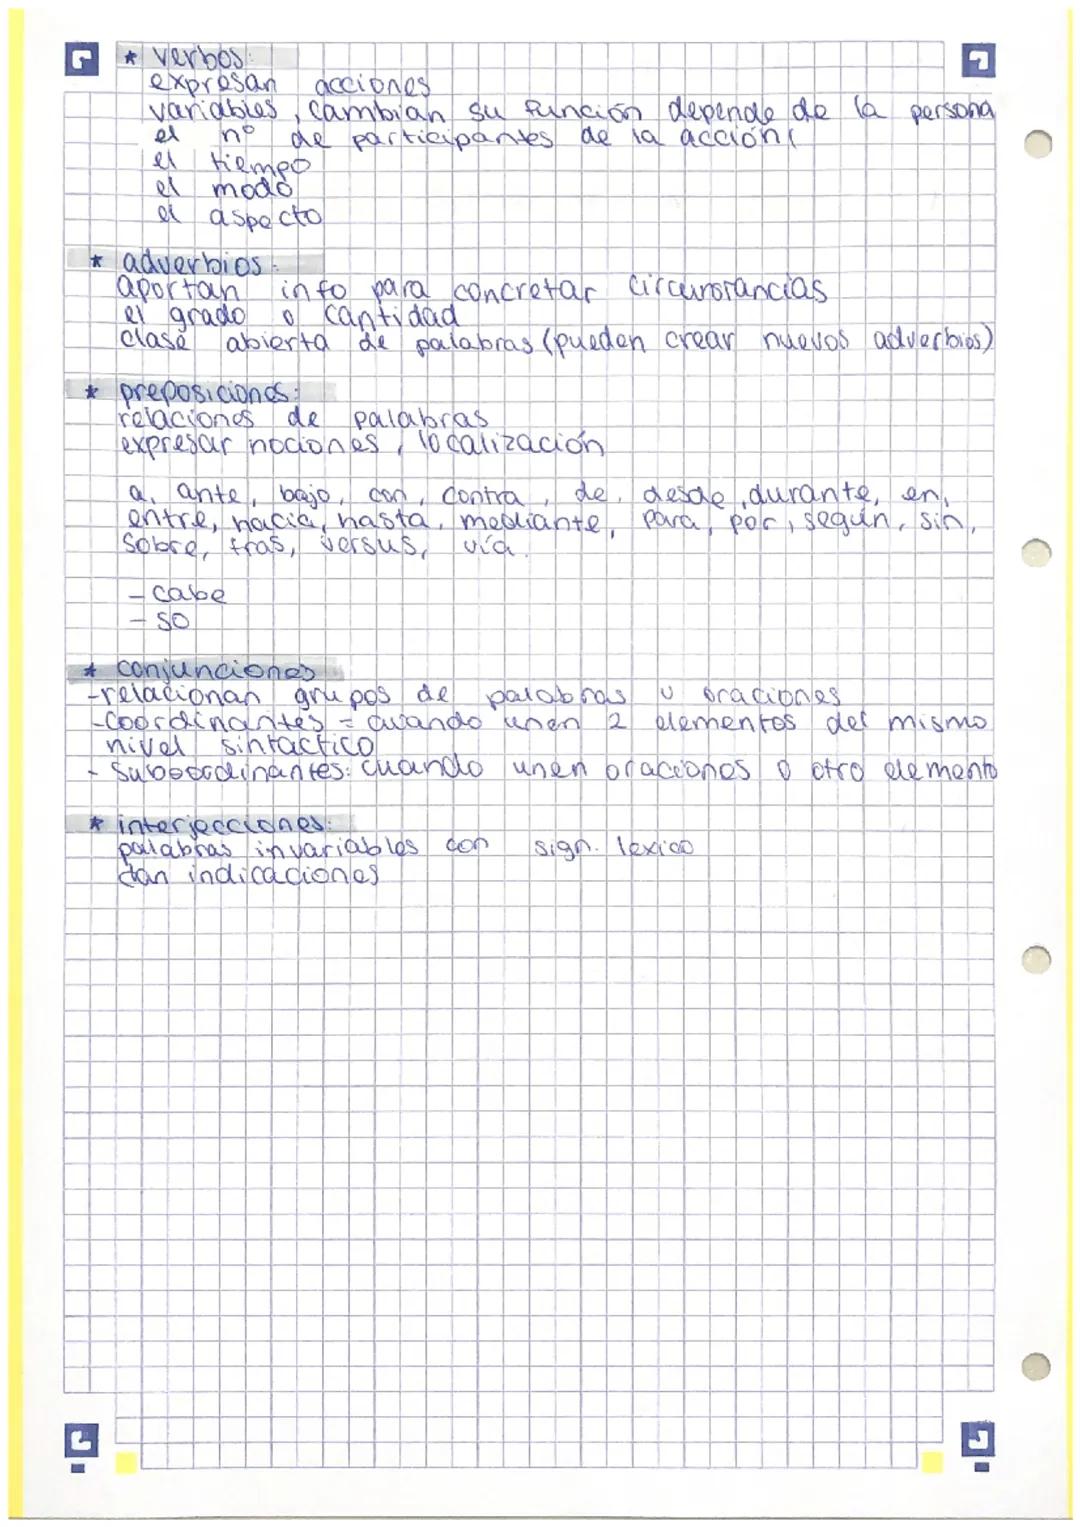 * verbos:
expresan acciones
variables, cambian su función depende de la persona
el nº de participantes de la acción(
el tiempo
el modo
el aspecto
* adverbios:
aportan info para concretar circunstancias
el grado o cantidad
clase abierta de palabras (pueden crear nuevos adverbios)
* preposiciones:
relaciones de palabras
expresar nociones, localización
a, ante, bajo, con, contra, de, desde, durante, en,
entre, hacia, hasta, mediante, para, por, según, sin,
sobre, tras, versus, vía.
- cabe
- so
* conjunciones
- relacionan grupos de palabras u oraciones
- Coordinantes = cuando unen 2 elementos del mismo
nivel sintactico
- Suboordinantes: cuando unen oraciones o otro elemento
* interjecciones:
palabras invariables con sign. lexico
dan indicaciones